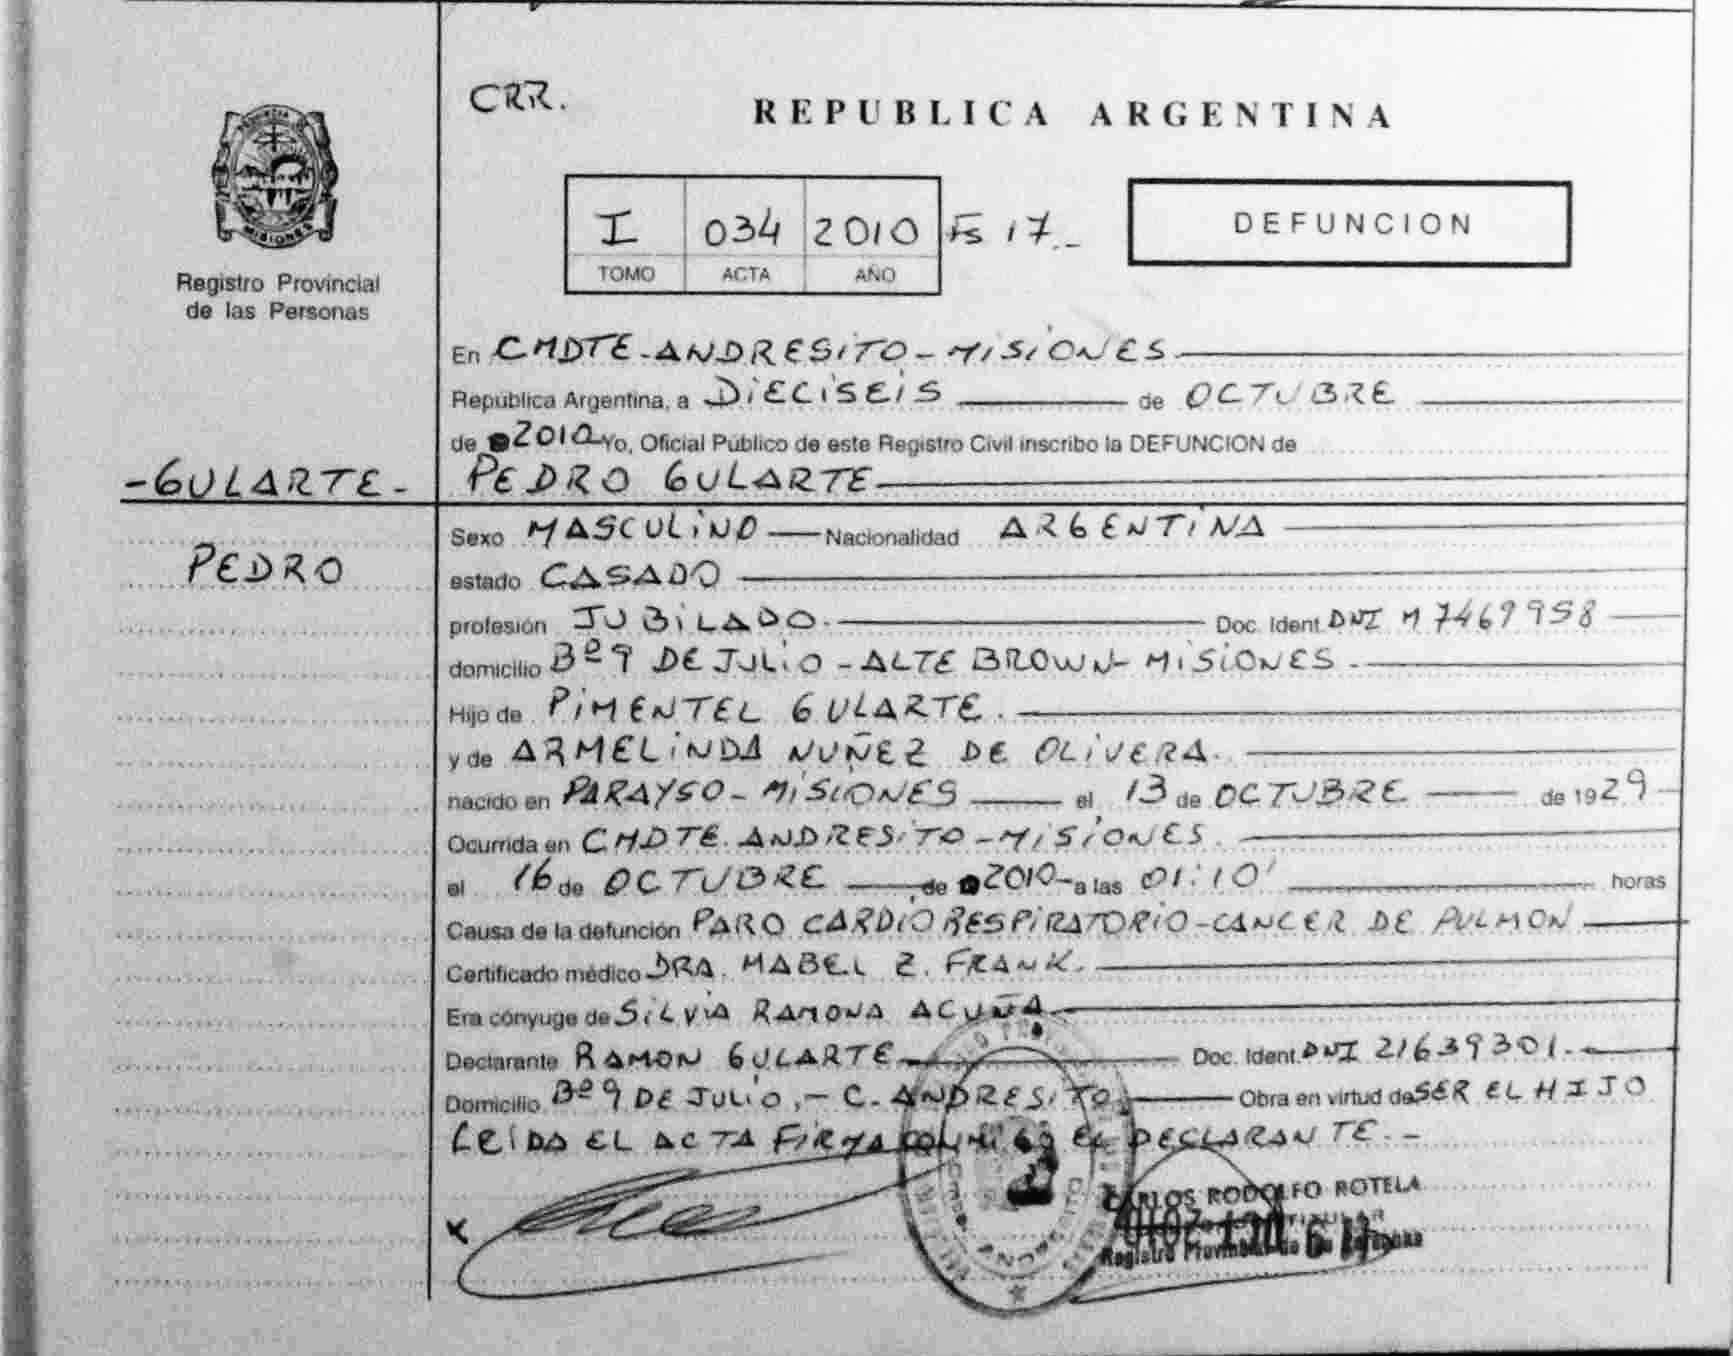 CRR.
REPUBLICA ARGENTINA
MISIONES
Registro Provincial
de las Personas
I 034 2010 Fs 17.-
TOMO ACTA AÑO
DEFUNCION
En CMDTE-ANDRESITO-MISIONES
República Argentina, a DIECISEIS de OCTUBRE
de 2010 Yo, Oficial Público de este Registro Civil inscribo la DEFUNCION de
-GULARTE- PEDRO GULARTE
PEDRO
Sexo MASCULINO Nacionalidad ARGENTINA
estado CASADO
profesión JUBILADO. Doc. Ident. DNI M 7469958
domicilio Bº 9 DE JULIO - ALTE BROWN - MISIONES.
Hijo de PIMENTEL GULARTE.
y de ARMELINDA NUÑEZ DE OLIVERA.
nacido en PARAYSO - MISIONES el 13 de OCTUBRE de 1929
Ocurrida en CMDTE. ANDRESITO - MISIONES.
el 16 de OCTUBRE de 2010 a las 01:10' horas
Causa de la defunción PARO CARDIO RESPIRATORIO - CANCER DE PULMON
Certificado médico DRA. MABEL Z. FRANK.
Era cónyuge de SILVIA RAMONA ACUÑA
Declarante RAMON GULARTE Doc. Ident. DNI 21639301.-
Domicilio Bº 9 DE JULIO.- C. ANDRESITO Obra en virtud de SER EL HIJO
LEIDA EL ACTA FIRMA CONMIGO EL DECLARANTE.-
CARLOS RODOLFO ROTELA
TITULAR
Registro Provincial de las Personas